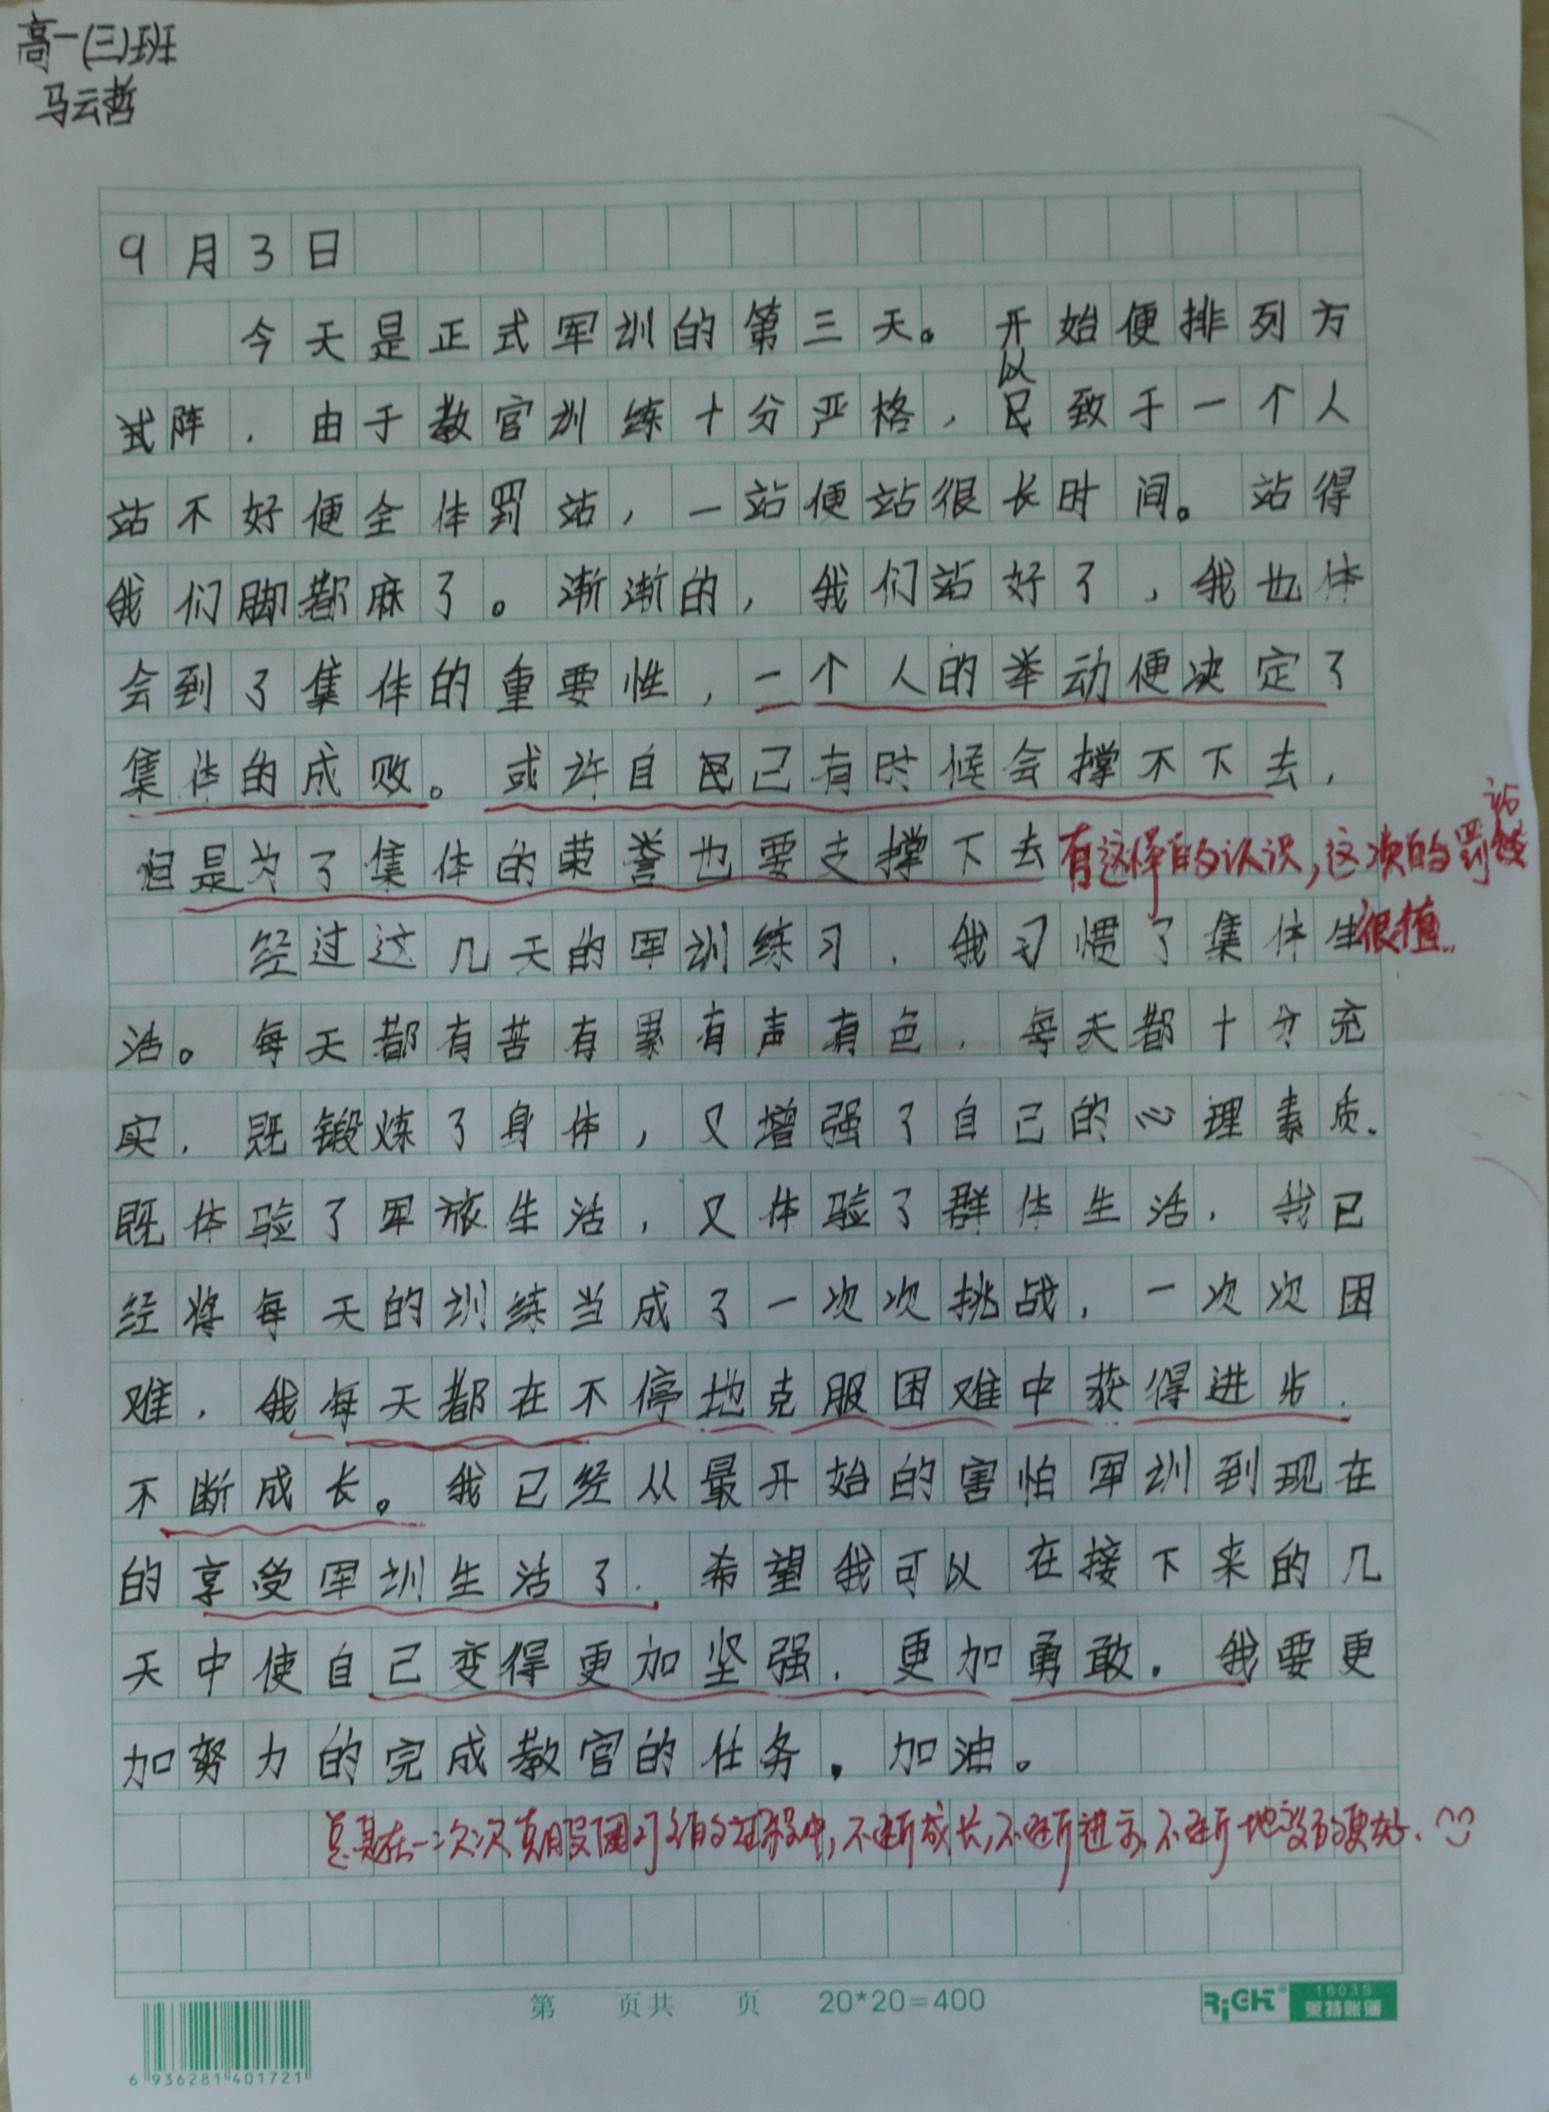 高一(三)班
马云哲
9月3日
今天是正式军训的第三天。开始便排列方
式阵，由于教官训练十分严格，以致于一个人
站不好便全体罚站，一站便站很长时间。站得
我们脚都麻了。渐渐的，我们站好了，我也体
会到了集体的重要性，一个人的举动便决定了
集体的成败。或许自己有时候会撑不下去，
但是为了集体的荣誉也要支撑下去
有这样的认识，这次的罚站
很值..
经过这几天的军训练习，我习惯了集体生
活。每天都有苦有累有声有色，每天都十分充
实，既锻炼了身体，又增强了自己的心理素质.
既体验了军旅生活，又体验了群体生活，我已
经将每天的训练当成了一次次挑战，一次次困
难，我每天都在不停地克服困难中获得进步.
不断成长。我已经从最开始的害怕军训到现在
的享受军训生活了.希望我可以在接下来的几
天中使自己变得更加坚强，更加勇敢。我要更
加努力的完成教官的任务。加油。
总是在一次次克服困难的过程中，不断成长，不断进步、不断地变的更好.
第 页共 页 20*20=400
RiCH 1603S
莱特账簿
6 936281 401721